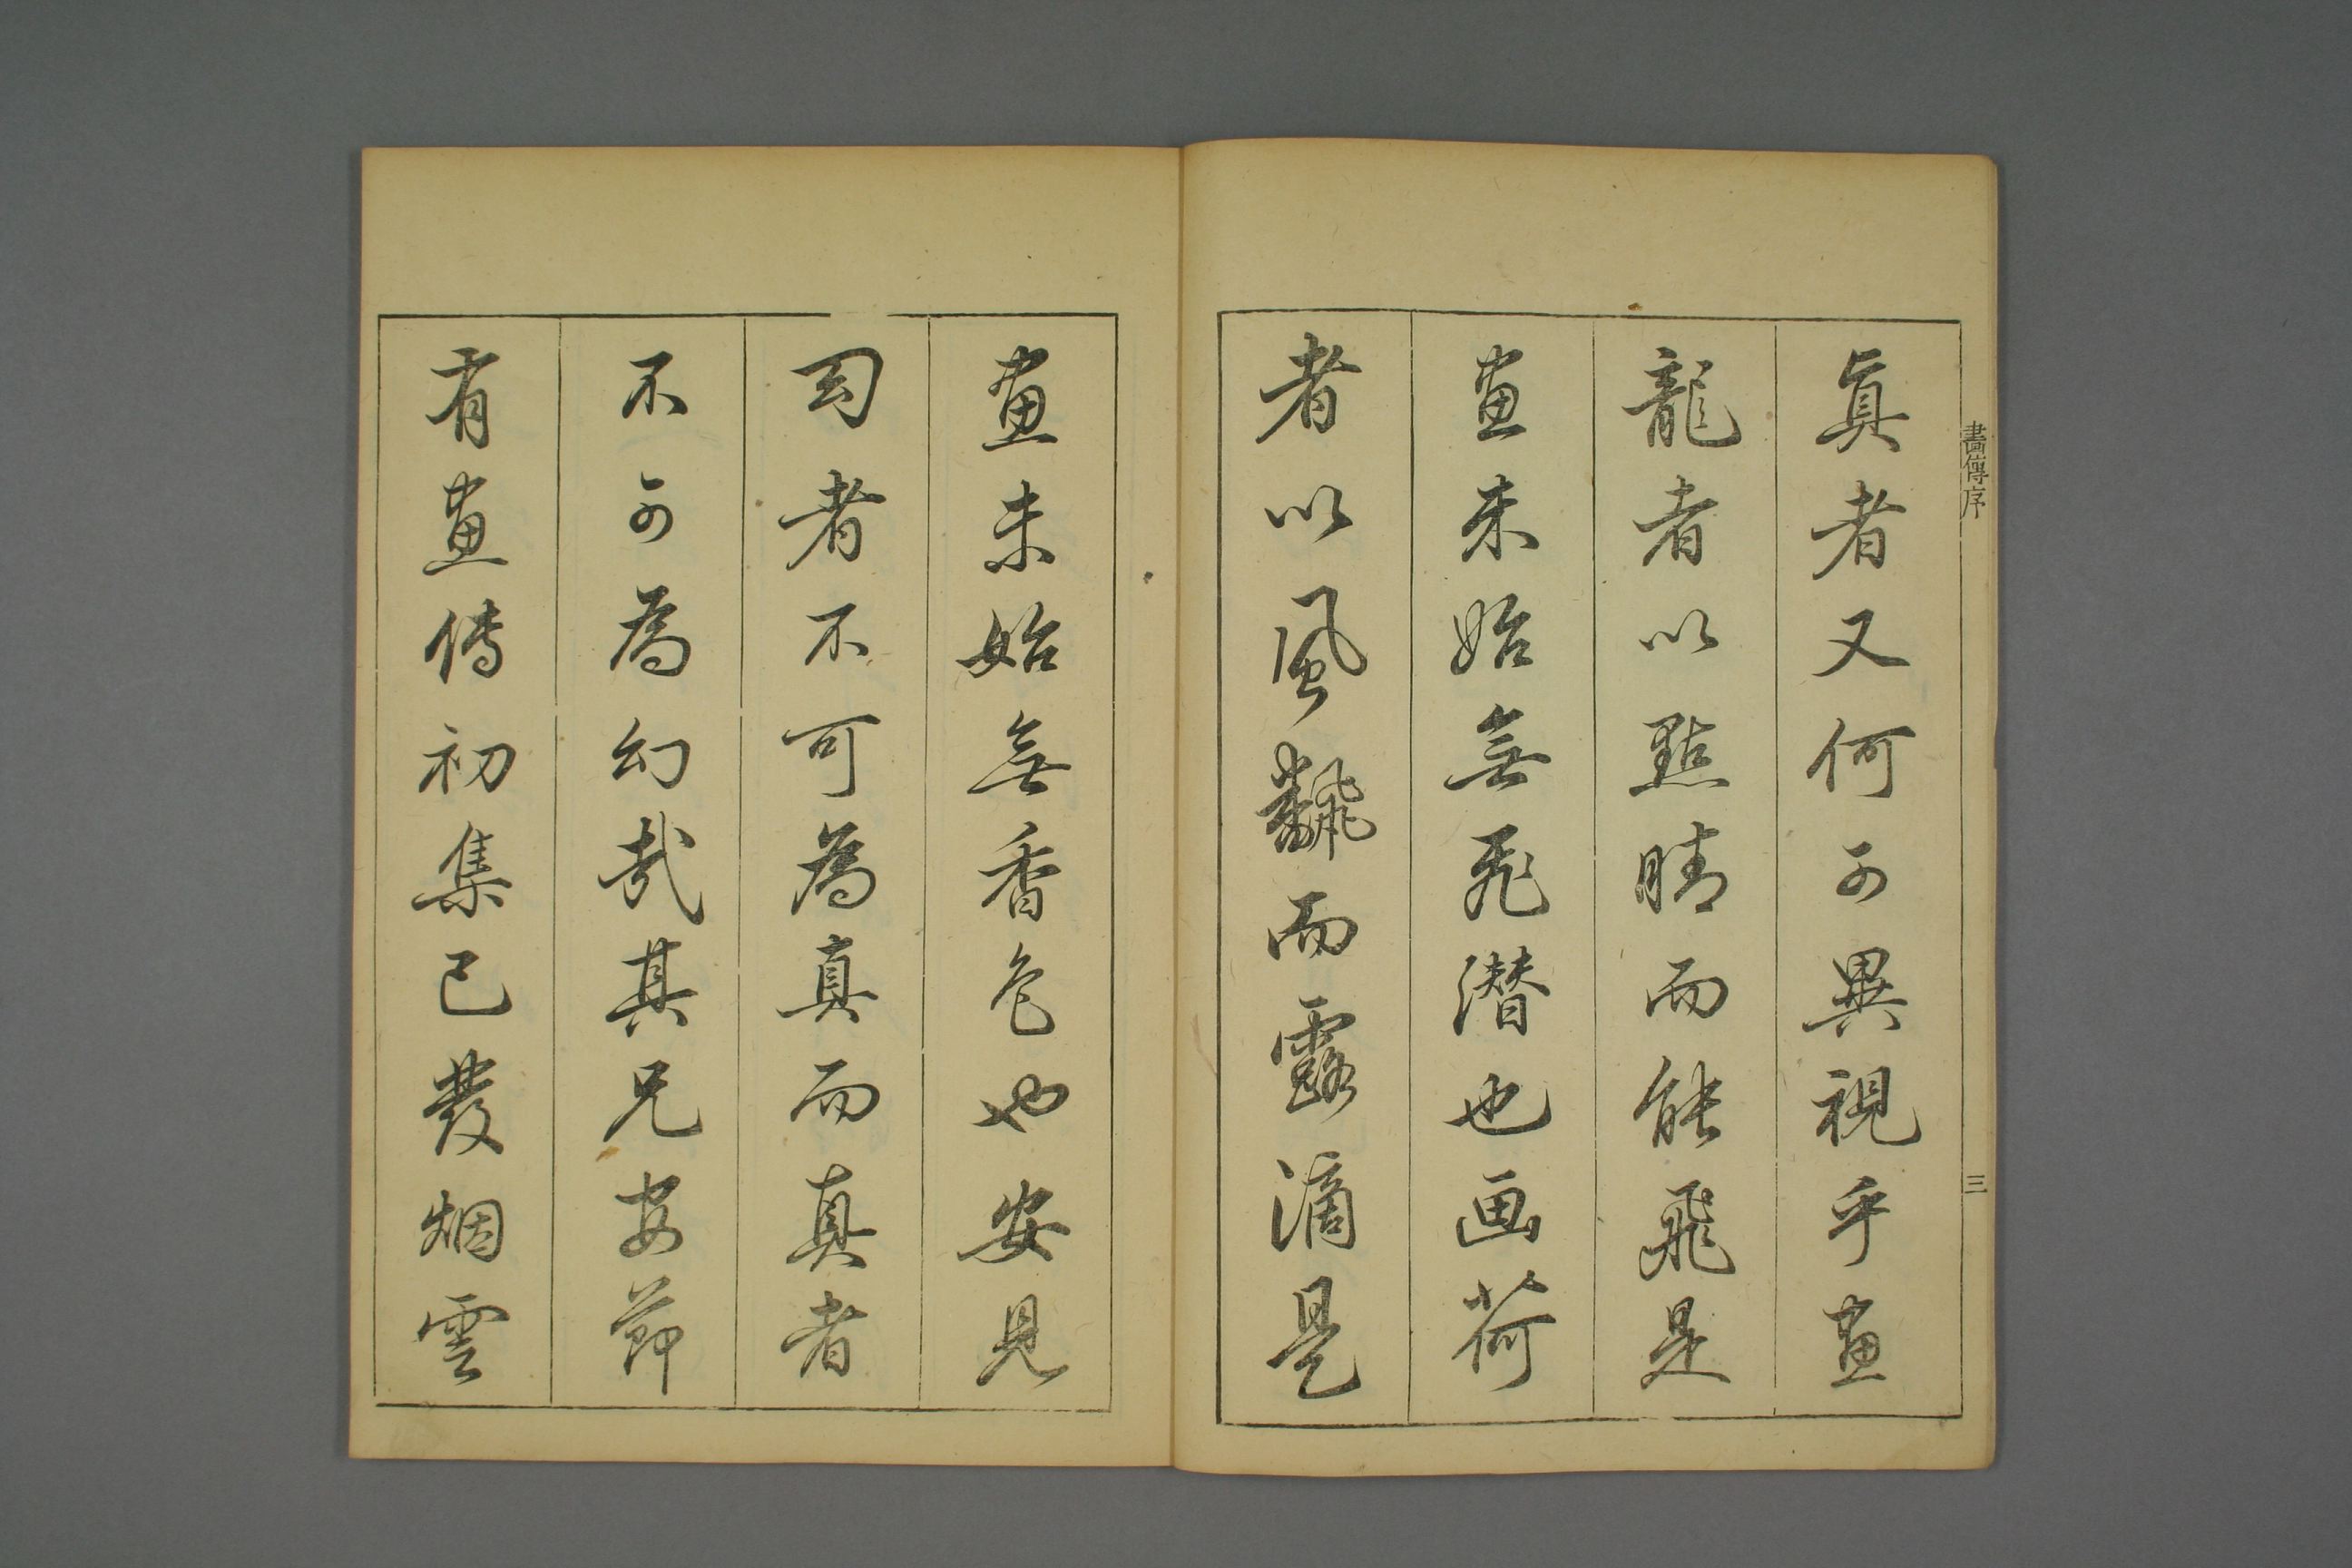 畫傳序 三
眞者又何可異視乎畫
龍者以點睛而能飛是
畫未始無飛潛也画荷
者以風飜而露滴是
畫未始無香色也安見
幻者不可為真而真者
不可為幻哉其兄安節
有畫傳初集已發烟雲